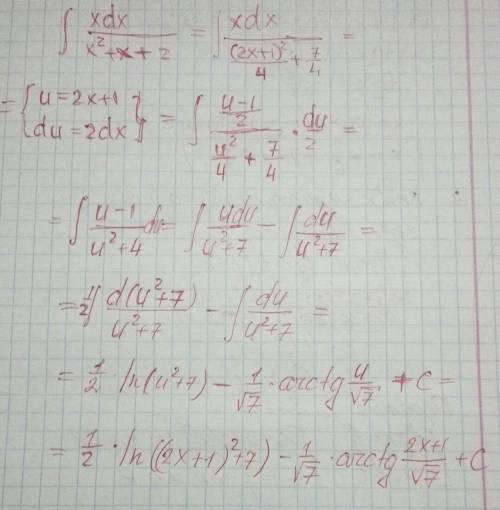 ∫ xdx / (x² + x + 2) = ∫ xdx / ((2x+1)²/4 + 7/4) =
= { u = 2x+1; du = 2dx } = ∫ ((u-1)/2) / (u²/4 + 7/4) · du/2 =
= ∫ (u-1)/(u²+4) du = ∫ udu/(u²+7) - ∫ du/(u²+7) =
= 1/2 ∫ d(u²+7)/(u²+7) - ∫ du/(u²+7) =
= 1/2 · ln(u²+7) - 1/√7 · arctg u/√7 + C =
= 1/2 · ln((2x+1)²+7) - 1/√7 · arctg (2x+1)/√7 + C